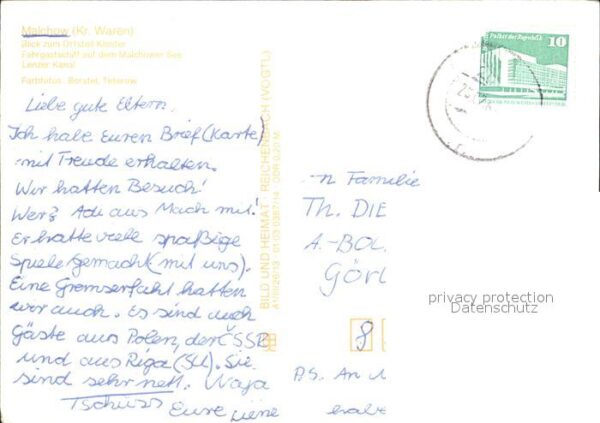 Malchow (Kr. Waren)
Blick zum Ortsteil Kloster
Fahrgastschiff auf dem Malchower See
Lenzer Kanal
Farbfotos: Borstel, Teterow
Liebe gute Eltern.
Ich habe Euren Brief (Karte)
mit Freude erhalten.
Wir hatten Besuch!
Wer? Adi aus Mach mit!
Er hatte viele spaßige
Spiele gemacht (mit uns).
Eine Gremserfahrt hatten
wir auch. Es sind auch
Gäste aus Polen, der ČSSR
und aus Riga (SU). Sie
sind sehr nett. Naja
Tschüss Eure Liene
BILD UND HEIMAT REICHENBACH (VOGTL)
DDR 0,20 M
Palast der Republik
10
n Familie
Th. DIE
A.-BOL
GÖRL
privacy protection
Datenschutz
8
P.S. An
habe